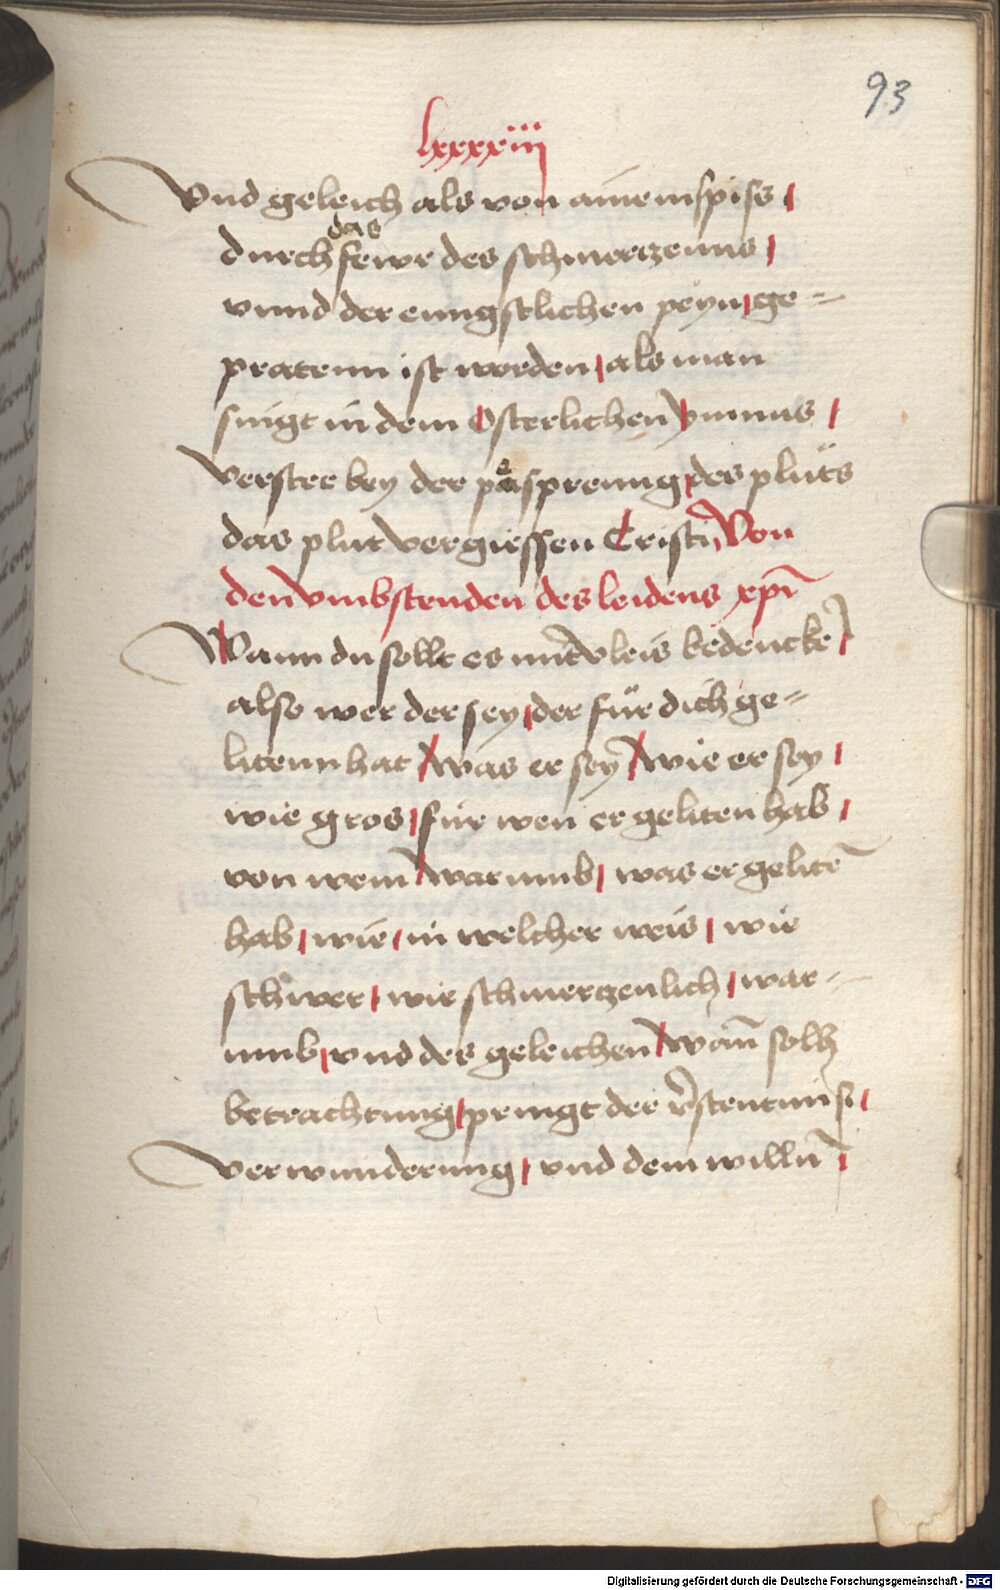 93
lxxxxiij
Vnd geleich als von ainem spiss /
das
durch fewr des schmerczenns /
vnnd der enngstlichen peyn / ge=
pratenn ist worden / als man
singt in dem Osterlichen ympnus /
Verstee bey der pesprenng / des pluets
das plut vergiessen Cristi / Von
den vmbstenden des leidens xpi
Wann du sollt es mit vleis bedencken /
also wer der sey / der für dich ge=
litenn hat / was er sey / wie er sey /
wie gros / für wen er geliten hab /
von wem / warumb / was er gelitē
hab / wie / in welcher weis / wie
schwer / wie schmerczenlich / war=
umb / vnd des geleichen / wañ solh
betrachtung / pringt der v̄stentnuss /
verwunderung / vnd dem willn̄ /
Digitalisierung gefördert durch die Deutsche Forschungsgemeinschaft - DFG